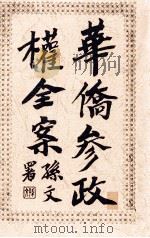 華僑参政
權全案
孫文署